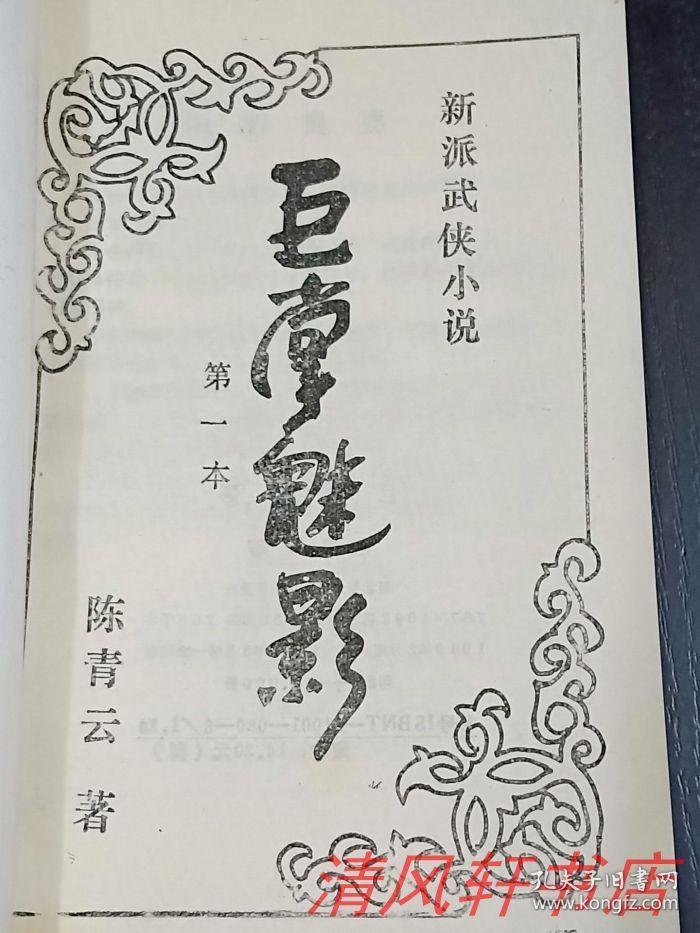 新派武侠小说
巨掌魅影
第一本
陈青云 著
清风轩书店
孔夫子旧书网
www.kongfz.com